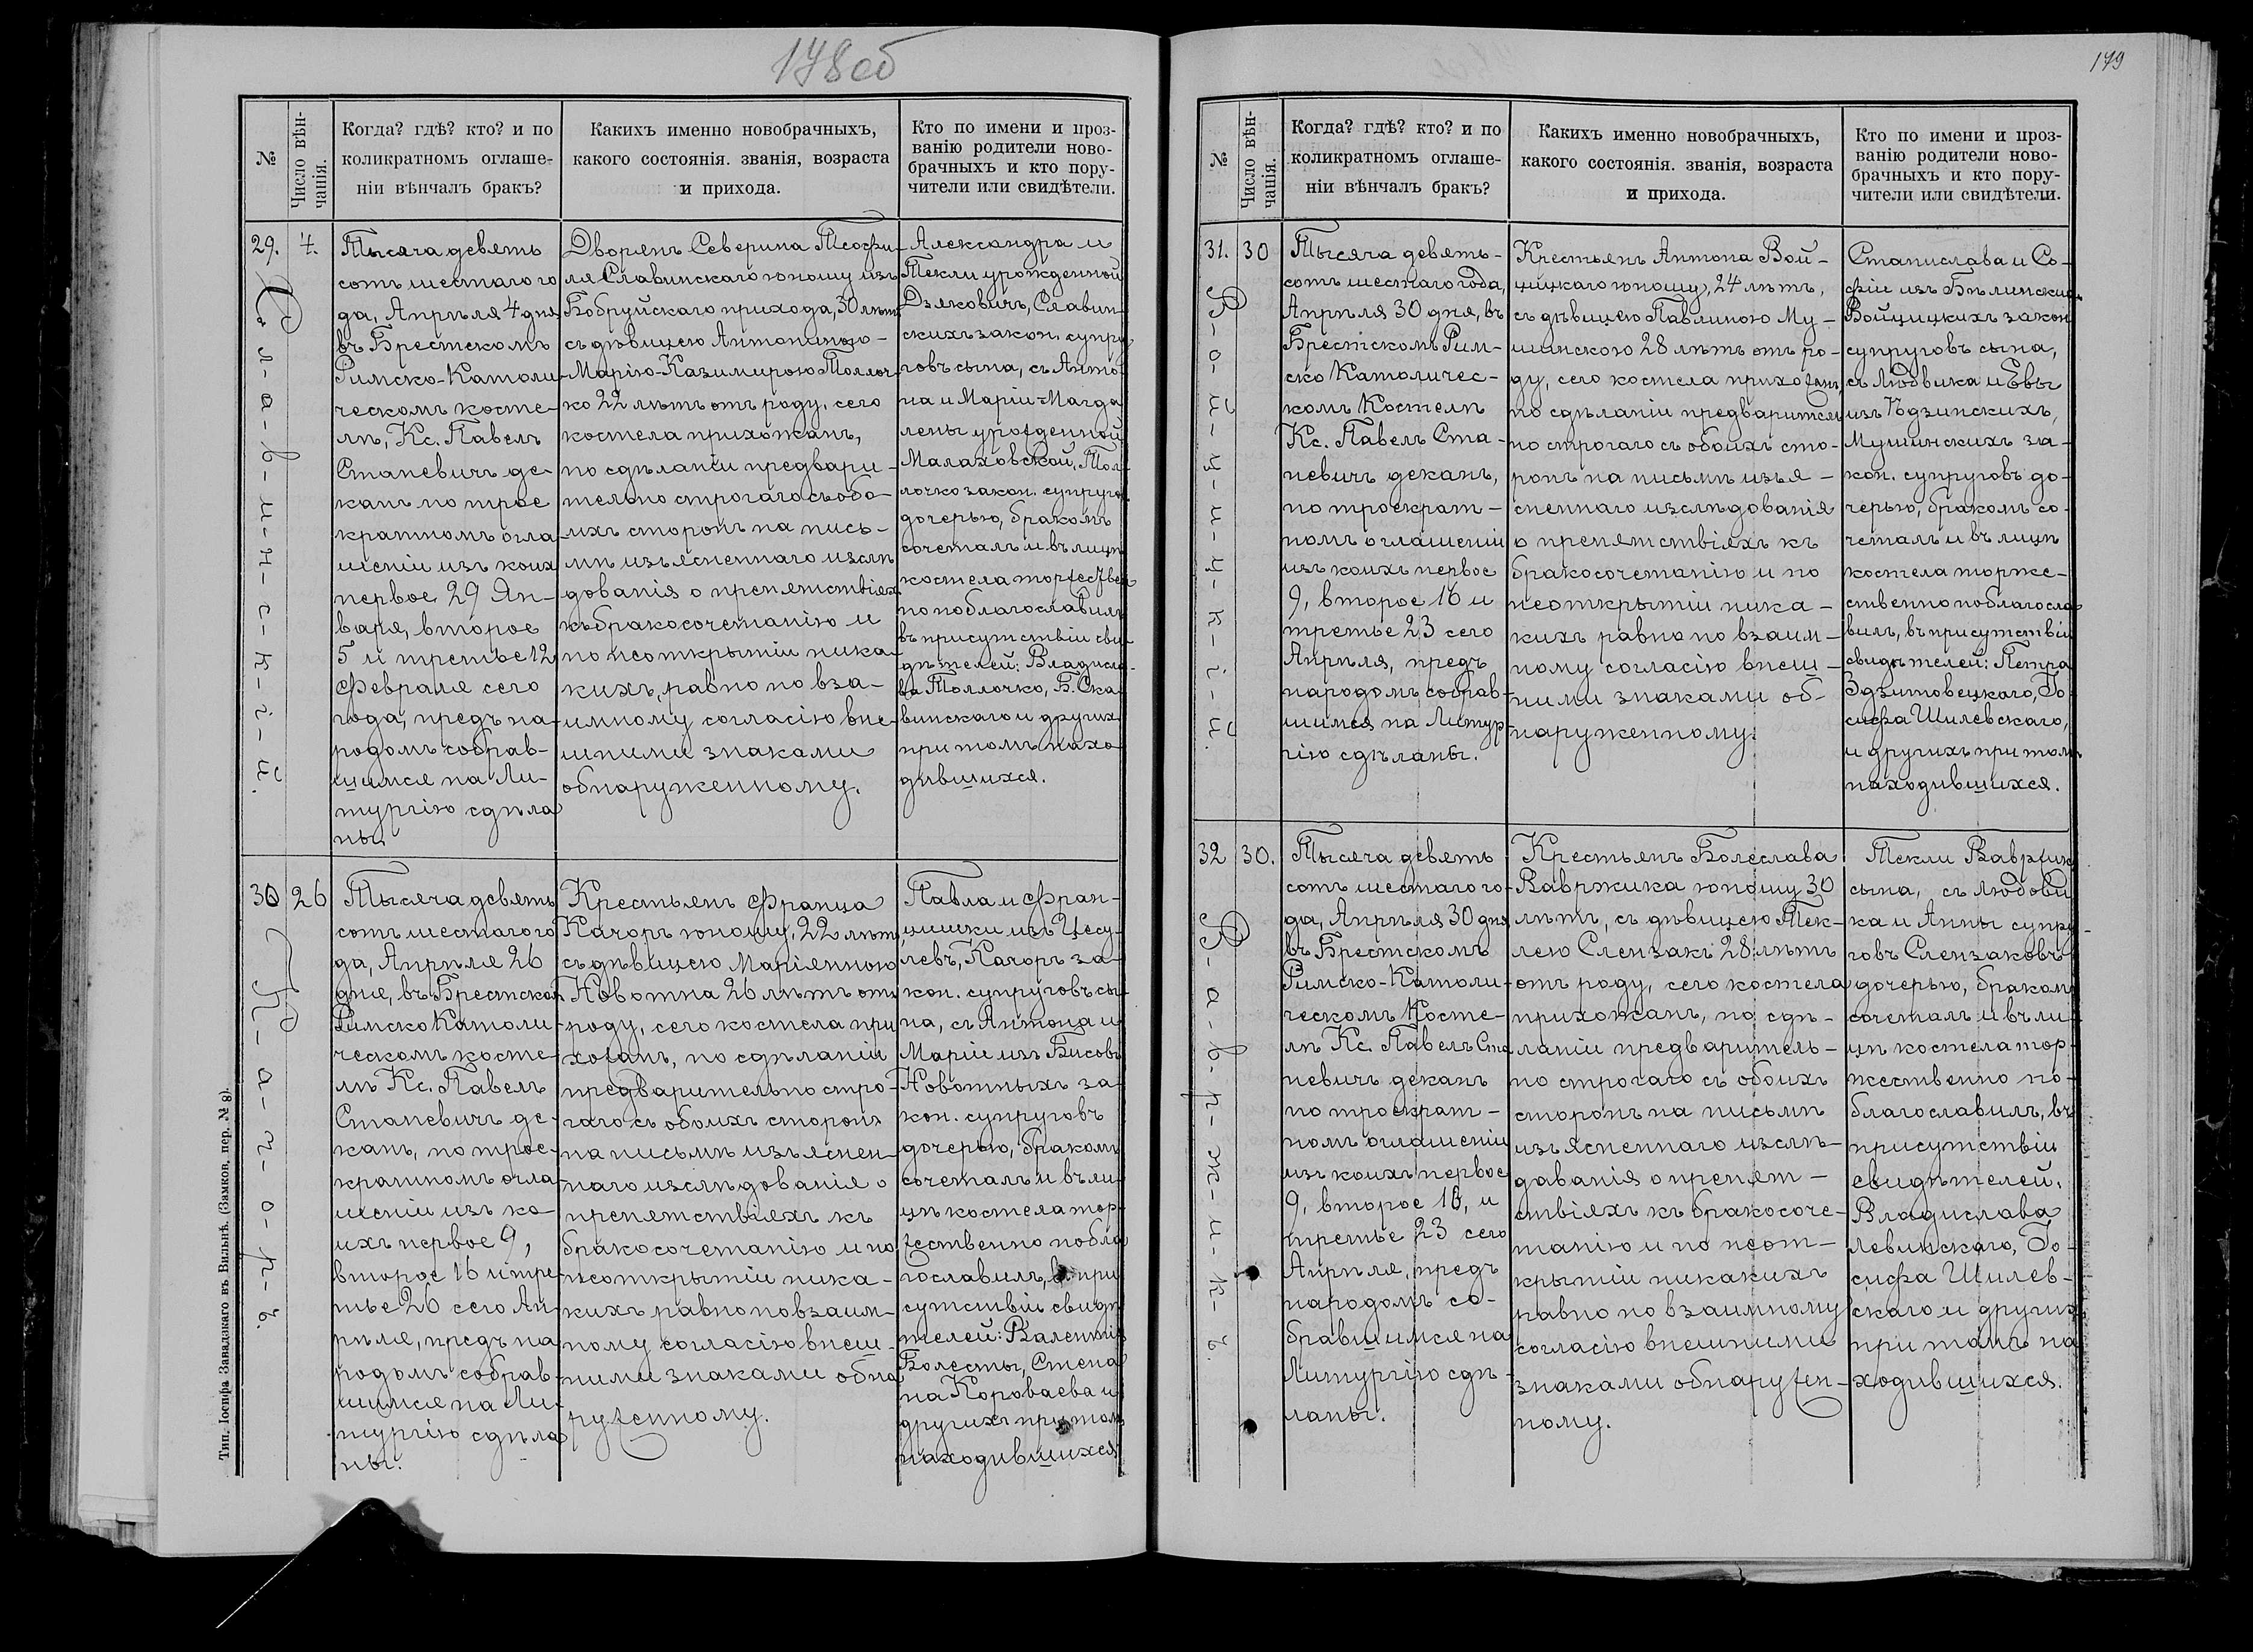 178об
№
Число вѣн-
чанія.
Когда? гдѣ? кто? и по
коликратномъ оглаше-
ніи вѣнчалъ бракъ?
Какихъ именно новобрачныхъ,
какого состоянія. званія, возраста
и прихода.
Кто по имени и проз-
ванію родители ново-
брачныхъ и кто пору-
чители или свидѣтели.
29.
С-л-а-в-и-н-с-к-і-й.
4.
Тысяча девять
сотъ шестаго го
да, Апрѣля 4 дня
въ Брестскомъ
Римско-Католи
ческомъ косте-
лѣ, Кс. Павелъ
Станевичъ де-
канъ по трое
кратномъ огла
шеніи изъ коих
первое 29 Ян-
варя, второе
5 и третье 12
Февраля сего
года, предъ на-
родомъ собрав-
шимся на Ли-
тургію сдѣла
ны
Дворянъ Северина Теофи-
ля Славинскаго юношу изъ
Бобруйскаго прихода, 30 лѣтъ
съ дѣвицею Антониною-
-Марію-Казимирою Толлоч-
ко 22 лѣтъ отъ роду, сего
костела прихожанъ,
по сдѣланіи предвари-
тельно строгаго съ обо-
ихъ сторонъ на пись-
мѣ изъясненнаго изслѣ
дованія о препятствіяхъ
къ бракосочетанію и
по неоткрытіи ника-
кихъ, равно по вза-
имному согласію вне-
шними знаками
обнаруженному.
Александра и
Текли урожденной
Дзяковичъ, Славин-
скихъ закон. супру
говъ сына, съ Анто
на и Маріи-Магда
лены урожденной
Малаховской, Тол-
лочко закон. супругов
дочерью, бракомъ
сочеталъ и въ лицѣ
костела торжествен
но поблагославилъ
въ присутствіи сви-
дѣтелей: Владисла-
ва Толлочко, Б. Ска-
винскаго и другихъ
при томъ нахо-
дившихся.
30
К-а-ч-о-р-ъ.
26
Тысяча девять
сотъ шестаго го
да, Апрѣля 26
дня, въ Брестском
Римско Католи
ческомъ косте-
лѣ Кс. Павелъ
Станевичъ де-
канъ, по трое-
кратномъ огла
шеніи изъ ко-
ихъ первое 9,
второе 16 и тре
тье 26 сего Ап-
рѣля, предъ на
родомъ собрав-
шимся на Ли-
тургію сдѣла
ны.
Крестьянъ Франца
Качоръ юношу, 22 лѣтъ,
съ дѣвицею Маріянною
Новотна 26 лѣтъ отъ
роду, сего костела при
хожанъ, по сдѣланіи
предварительно стро-
гаго съ обоихъ сторонъ
на письмѣ изъяснен-
наго изслѣдованія о
препятствіяхъ къ
бракосочетанію и по
неоткрытіи ника-
кихъ равно по взаим-
ному согласію внеш-
ними знаками обна
руженному.
Павла и Фран-
цишки изъ Цесу-
левъ, Качоръ за-
кон. супруговъ сы-
на, съ Антона и
Маріи изъ Бисовъ
Новотныхъ за-
кон. супруговъ
дочерью, бракомъ
сочеталъ и въ ли-
цѣ костела тор-
жественно побла
гославилъ, въ при
сутствіи свидѣ
телей: Валентія
Болесты, Степа
на Короваева и
другихъ при том
находившихся
Тип. Іосифа Завадзкаго въ Вильнѣ. (Замков. пер. № 8).
179
№
Число вѣн-
чанія.
Когда? гдѣ? кто? и по
коликратномъ оглаше-
ніи вѣнчалъ бракъ?
Какихъ именно новобрачныхъ,
какого состоянія. званія, возраста
и прихода.
Кто по имени и проз-
ванію родители ново-
брачныхъ и кто пору-
чители или свидѣтели.
31.
В-о-й-ц-и-ц-к-і-й.
30
Тысяча девять-
сотъ шестаго года,
Апрѣля 30 дня, въ
Брестскомъ Рим-
ско Католичес-
комъ Костелѣ
Кс. Павелъ Ста-
невичъ деканъ,
по троекрат-
номъ оглашеніи
изъ коихъ первое
9, второе 16 и
третье 23 сего
Апрѣля, предъ
народомъ собрав-
шимся на Литур
гію сдѣланы.
Крестьянъ Антона Вой-
цицкаго юношу, 24 лѣтъ,
съ дѣвицею Павлиною Му-
шинскою 28 лѣтъ отъ ро-
ду, сего костела прихожан,
по сдѣланіи предваритель
но строгаго съ обоихъ сто-
ронъ на письмѣ изъя-
сненнаго изслѣдованія
о препятствіяхъ къ
бракосочетанію и по
неоткрытіи ника-
кихъ равно по взаим-
ному согласію внеш-
ними знаками об-
наруженному.
Станислава и Со-
фіи изъ Бѣлинских
Войцицкихъ закон
супруговъ сына,
съ Людвика и Евы
изъ Ѣдзинскихъ,
Мушинскихъ за-
кон. супруговъ до-
черью, бракомъ со-
четалъ и въ лицѣ
костела торже-
ственно поблагосла
вилъ, въ присутствіи
свидѣтелей: Петра
Здзитовецкаго, Іо
сифа Шилевскаго,
и другихъ при томъ
находившихся.
32
В-а-в-р-ж-и-к-ъ.
30.
Тысяча девять
сотъ шестаго го-
да, Апрѣля 30 дня
въ Брестскомъ
Римско-Католи-
ческомъ Косте-
лѣ Кс. Павелъ Ста
невичъ деканъ
по троекрат-
номъ оглашеніи
изъ коихъ первое
9, второе 16, и
третье 23 сего
Апрѣля, предъ
народомъ со-
бравшимся на
Литургію сдѣ-
ланы.
Крестьянъ Болеслава
Вавржика юношу 30
лѣтъ, съ дѣвицею Тек-
лею Слензакъ 28 лѣтъ
отъ роду, сего костела
прихожанъ, по сдѣ-
ланіи предваритель-
но строгаго съ обоихъ
сторонъ на письмѣ
изъясненнаго изслѣ-
дованія о препят-
ствіяхъ къ бракосоче-
танію и по неот-
крытіи никакихъ
равно по взаимному
согласію внешними
знаками обнаружен-
ному.
Текли Вавржик
сына, съ Людови
ка и Анны супру-
говъ Слензаковъ
дочерью, бракомъ
сочеталъ и въ ли
цѣ костела тор-
жественно по-
благославилъ, въ
присутствіи
свидѣтелей.
Владислава
Левинскаго, Іо-
сифа Шилев-
скаго и другихъ
при томъ на
ходившихся.